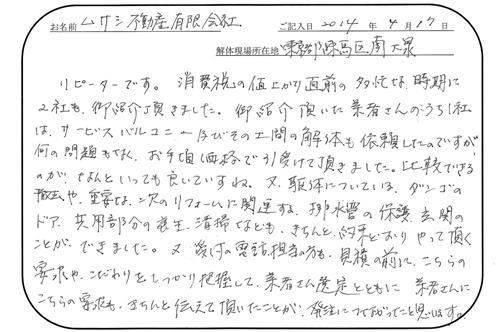 お名前 ムサシ不動産有限会社 ご記入日 2014 年 4 月 17 日
解体現場所在地 東京都練馬区南大泉
リピーターです。消費税の値上がり直前の多忙な時期に
2社も御紹介頂きました。御紹介頂いた業者さんのうち1社
は、サービスバルコニー及びその土間の解体も依頼したのですが
何の問題もなく、お手頃価格で引受けて頂きました。比較できる
のが、なんといっても良いですね。又、躯体についている、ダンゴの
撤去や、重要な、次のリフォームに関連する、排水管の保護、玄関の
ドア、共用部分の養生、清掃なども、きちんと、約束どおりやって頂く
ことができました。又、受付の電話担当の方も、見積の前に、こちらの
要求や、こだわりをしっかり把握して、業者さん選定とともに 業者さんに
こちらの要求も、きちんと伝えて頂いたことが、発注につながったと思います。